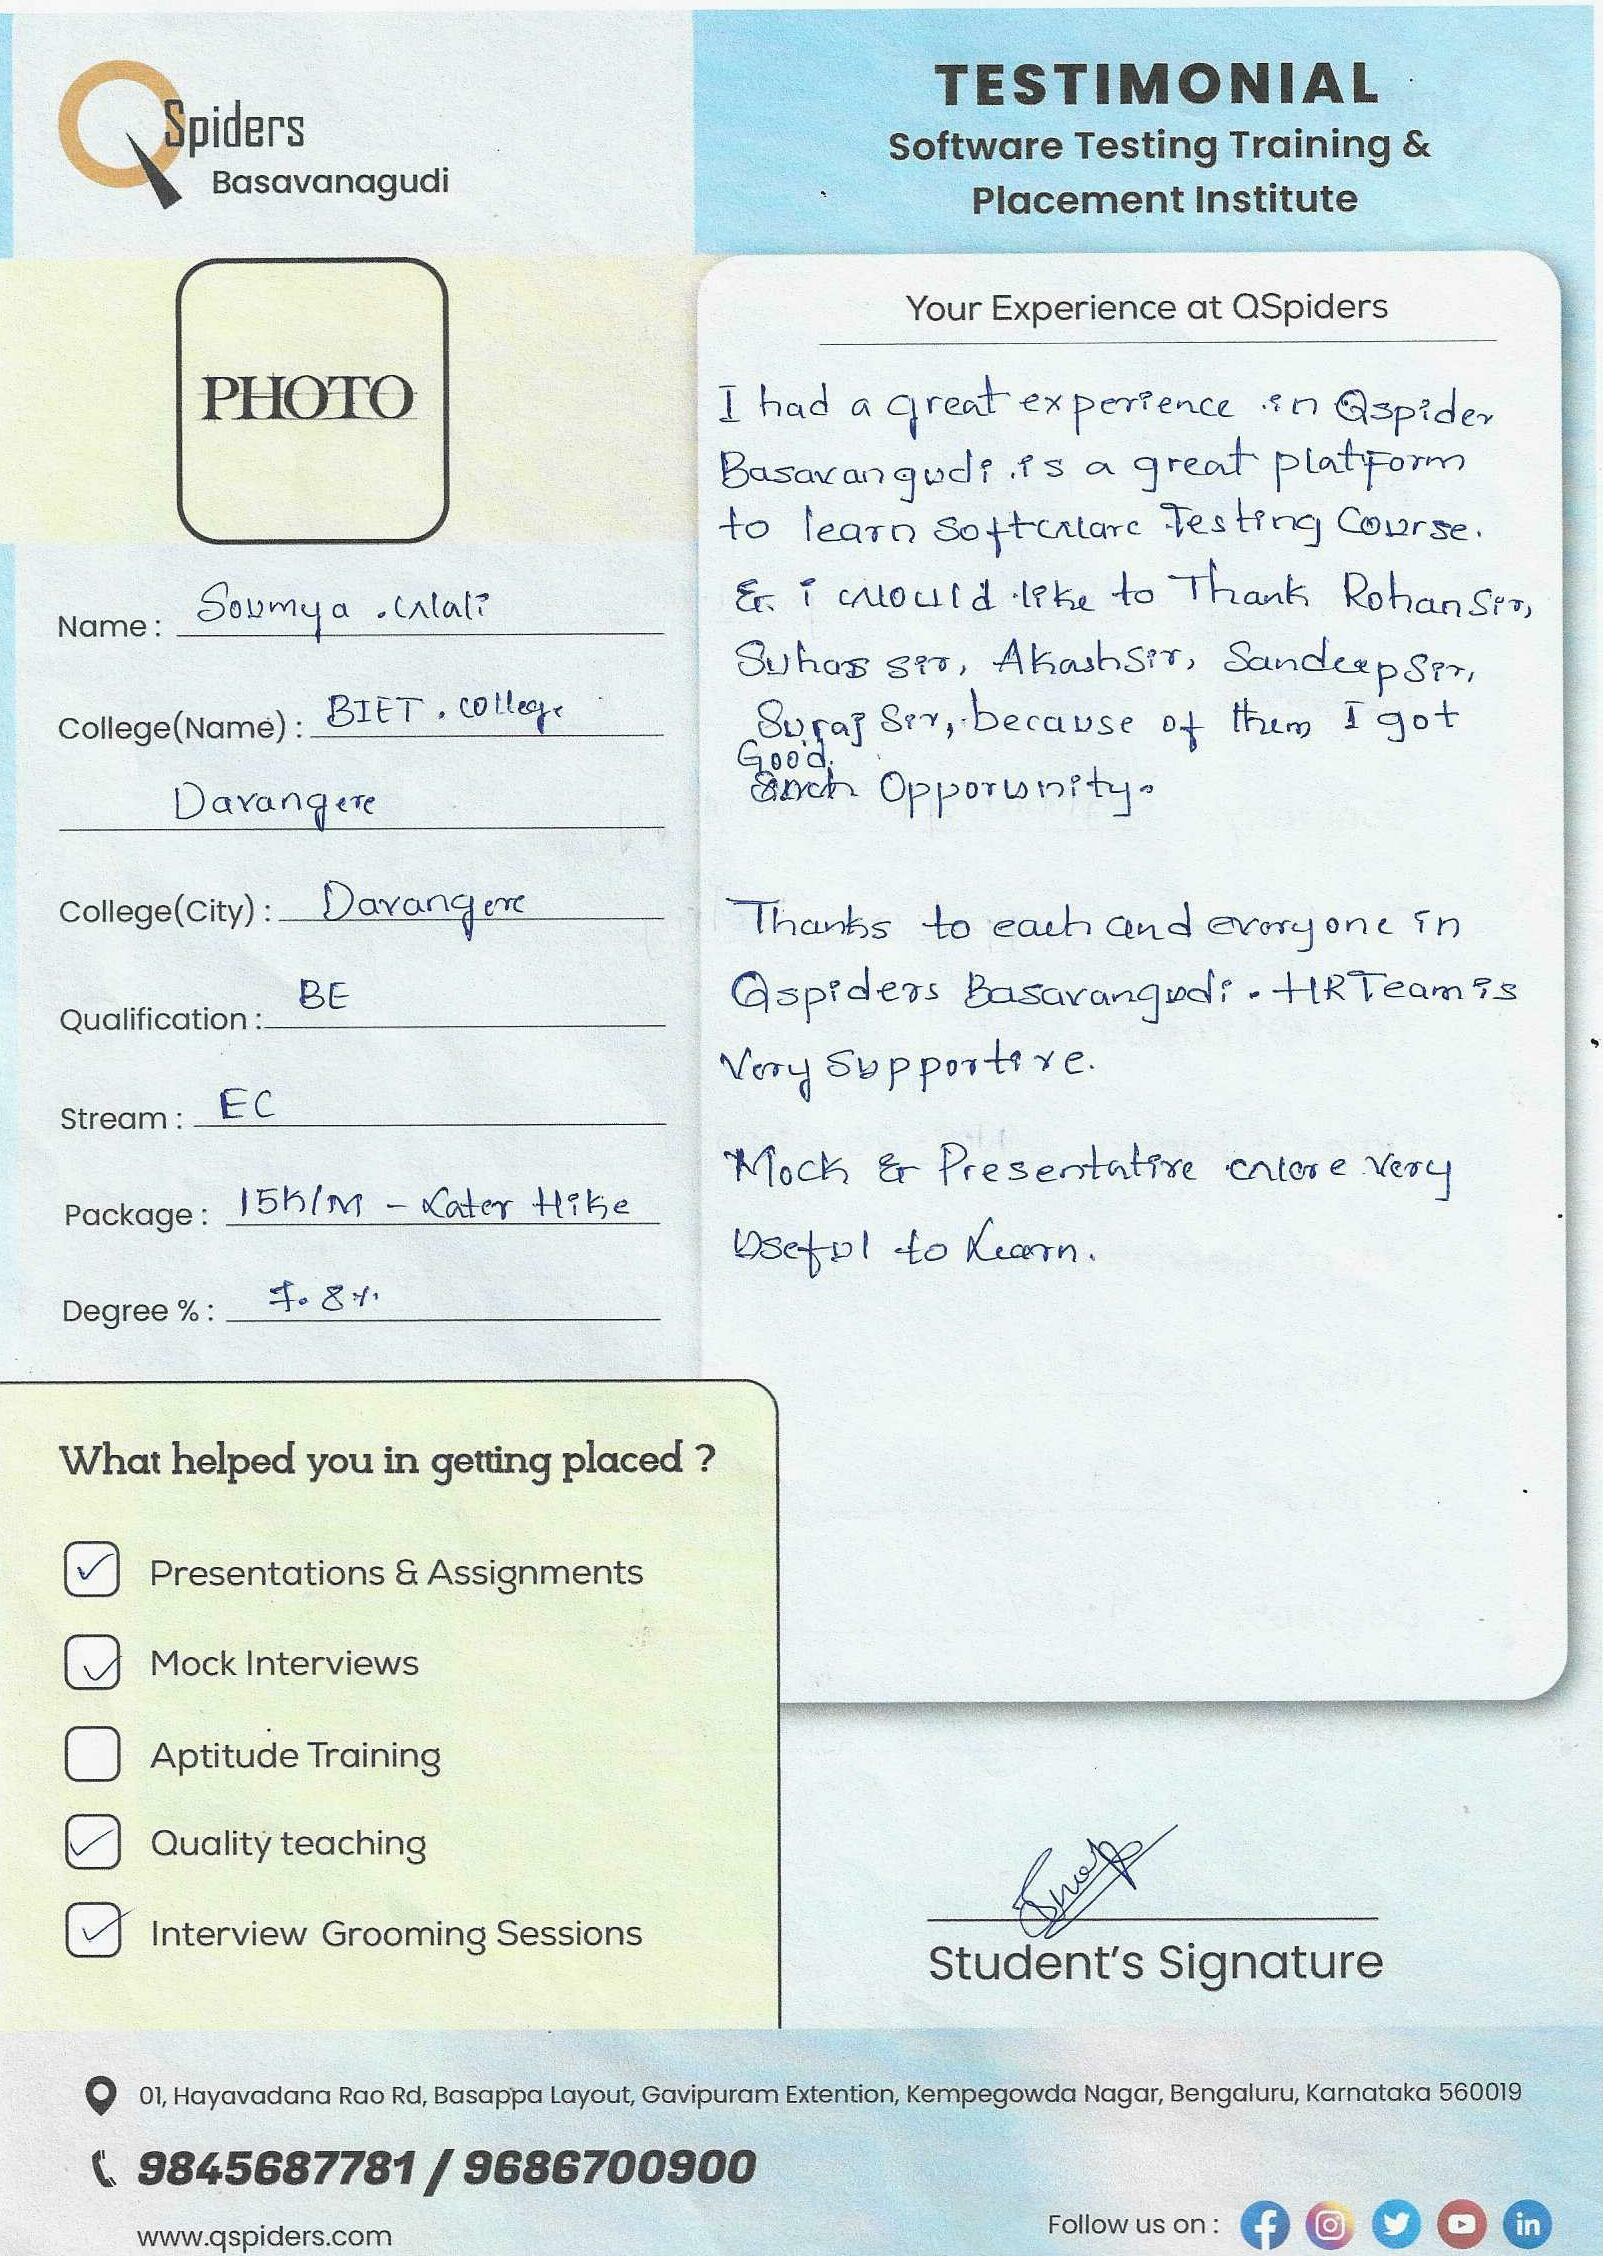 QSpiders
Basavanagudi
TESTIMONIAL
Software Testing Training &
Placement Institute
PHOTO
Name : Soumya .Wali
College(Name) : BIET . College
Davangere
College(City) : Davangere
Qualification : BE
Stream : EC
Package : 15K/M - Later Hike
Degree % : 7.8%
Your Experience at QSpiders
I had a great experience in Qspider
Basavangudi is a great platform
to learn Software Testing Course.
& i would like to Thank Rohan Sir,
Suhas sir, Akash Sir, Sandeep Sir,
Suraj Sir, because of them I got
Good
Opporunity.
Thanks to each and everyone in
Qspiders Basavangudi. HR Team is
Very Supportive.
Mock & Presentative were very
Useful to Learn.
What helped you in getting placed ?
Presentations & Assignments
Mock Interviews
Aptitude Training
Quality teaching
Interview Grooming Sessions
Student's Signature
01, Hayavadana Rao Rd, Basappa Layout, Gavipuram Extention, Kempegowda Nagar, Bengaluru, Karnataka 560019
9845687781 / 9686700900
www.qspiders.com
Follow us on :